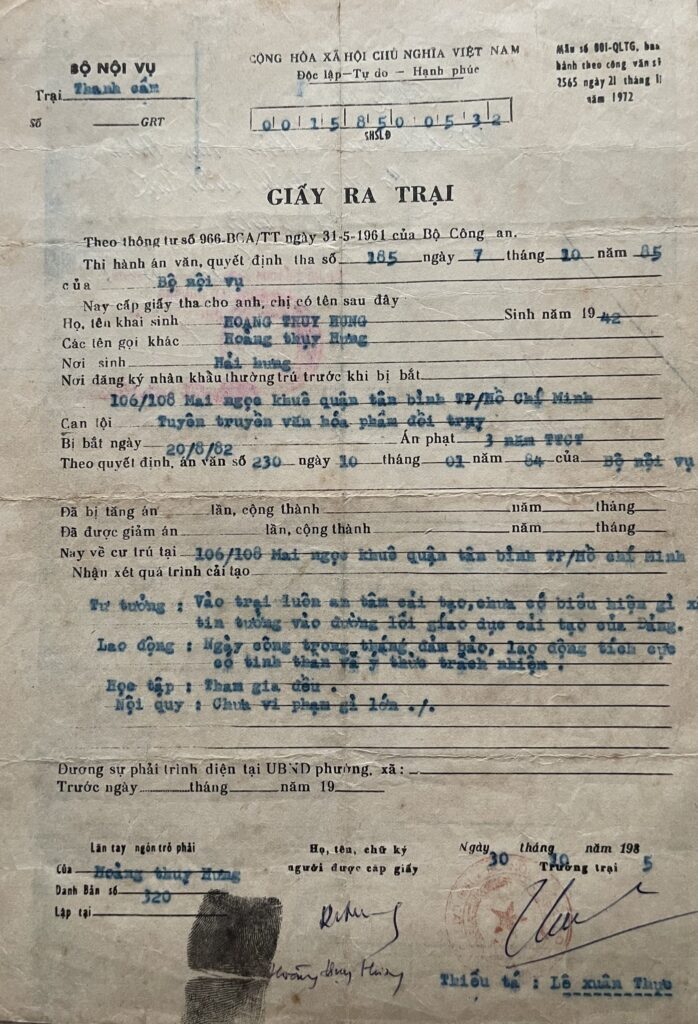 BỘ NỘI VỤ
Trại Thanh cẩm
Số GRT
CỘNG HÒA XÃ HỘI CHỦ NGHĨA VIỆT NAM
Độc lập—Tự do — Hạnh phúc
Mẫu số 001-QLTG, ban
hành theo công văn số
2565 ngày 21 tháng 11
năm 1972
0 0 1 5 8 5 0 0 5 3 2
SHSLĐ
GIẤY RA TRẠI
Theo thông tư số 966-BCA/TT ngày 31-5-1961 của Bộ Công an.
Thi hành án văn, quyết định tha số 185 ngày 7 tháng 10 năm 85
của Bộ nội vụ
Nay cấp giấy tha cho anh, chị có tên sau đây
Họ, tên khai sinh HOÀNG THUY HUNG Sinh năm 1942
Các tên gọi khác Hoàng thụy Hưng
Nơi sinh Hải hưng
Nơi đăng ký nhân khẩu thường trú trước khi bị bắt
106/108 Mai ngọc khuê quận tân bình TP/Hồ Chí Minh
Can tội Tuyên truyền văn hóa phẩm đồi trụy
Bị bắt ngày 20/8/82 Án phạt 3 năm TTCT
Theo quyết định, án văn số 230 ngày 10 tháng 01 năm 84 của Bộ nội vụ
Đã bị tăng án lần, cộng thành năm tháng
Đã được giảm án lần, cộng thành năm tháng
Nay về cư trú tại 106/108 Mai ngọc khuê quận tân bình TP/Hồ chí Minh
Nhận xét quá trình cải tạo
Tư tưởng : Vào trại luôn an tâm cải tạo, chưa có biểu hiện gì
tin tưởng vào đường lối giáo dục cải tạo của Đảng.
Lao động : Ngày công trong tháng đảm bảo, lao động tích cực
có tinh thần và ý thức trách nhiệm .
Học tập : Tham gia đều .
Nội quy : Chưa vi phạm gì lớn ./.
Đương sự phải trình diện tại UBND phường, xã :
Trước ngày tháng năm 19
Lăn tay ngón trỏ phải
Của Hoàng thụy Hưng
Danh Bản số 320
Lập tại
Họ, tên, chữ ký
người được cấp giấy
Hoàng Thụy Hưng
Ngày 30 tháng 10 năm 1985
Trưởng trại
Thiếu tá : Lê xuân Thực